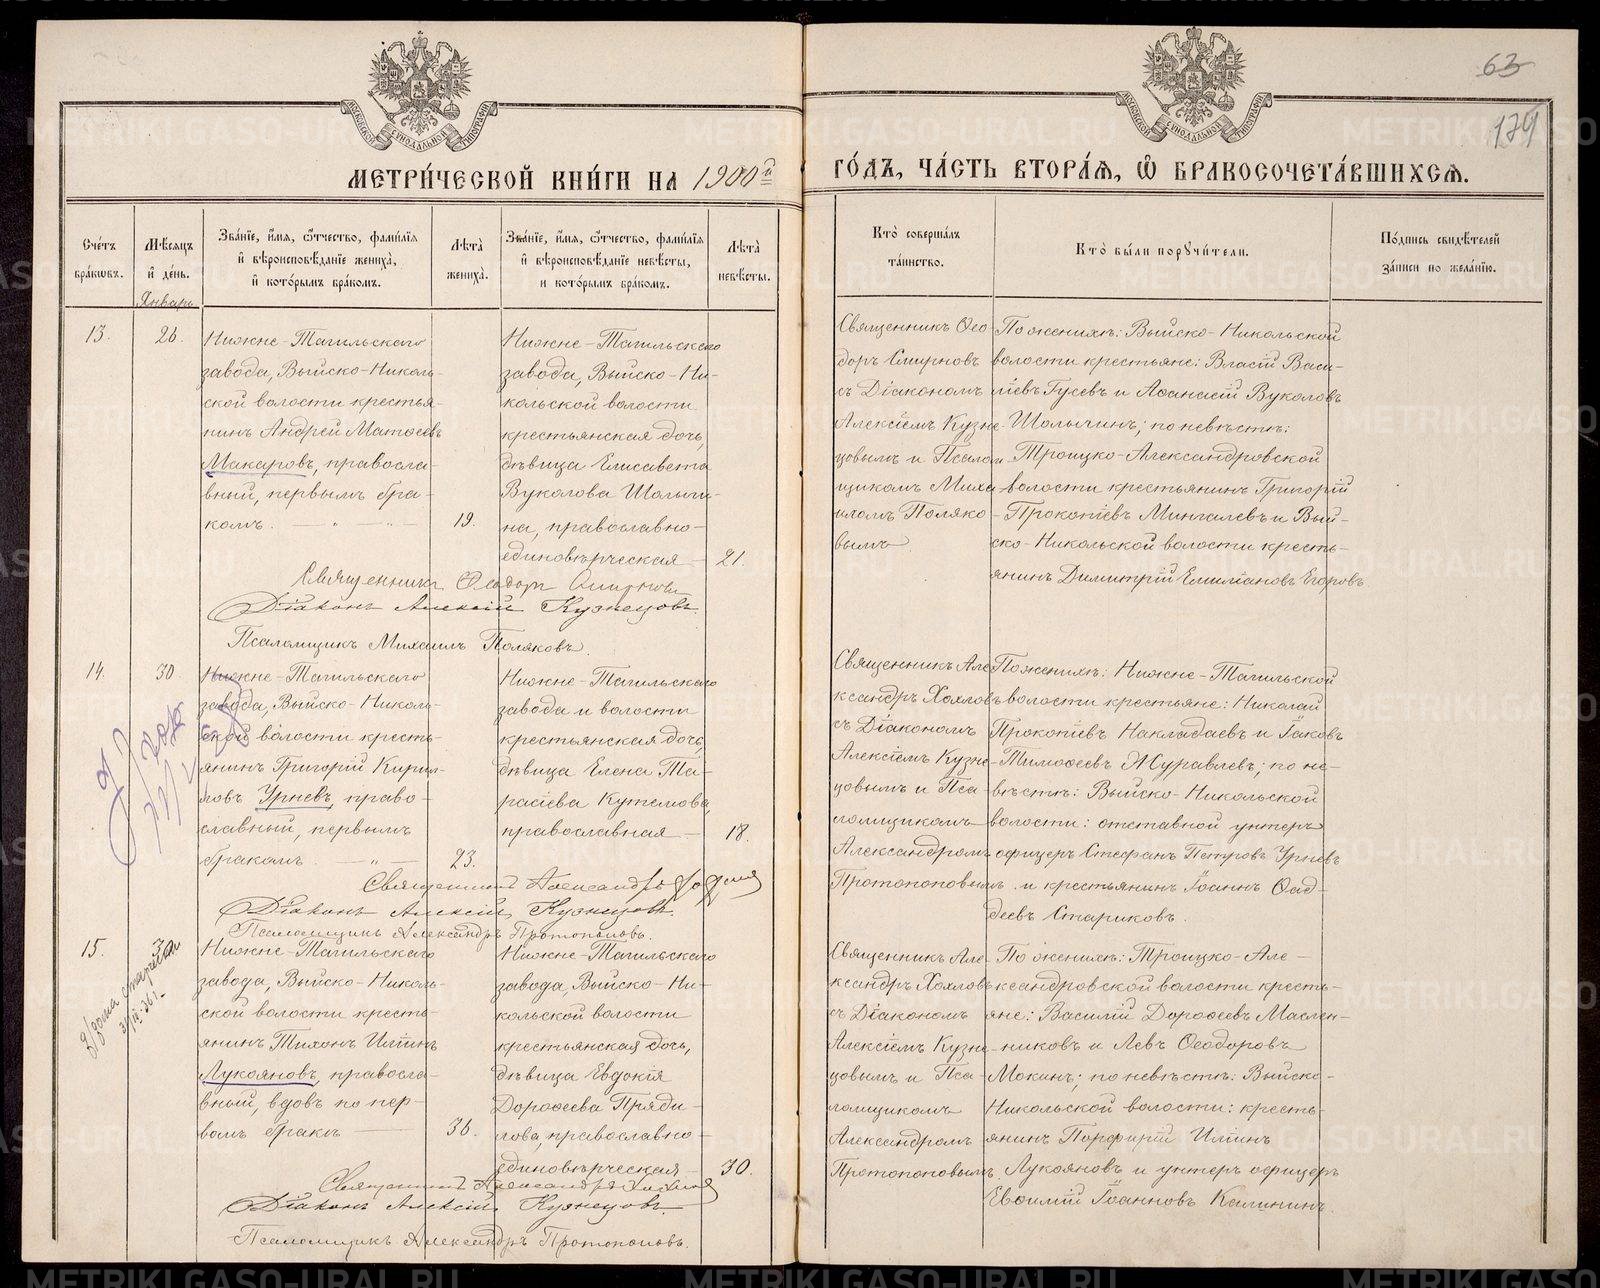 63
179
МЕТРИ́ЧЕСКОЙ КНИ́ГИ НА 1900й
ГО́ДЪ, ЧА́СТЬ ВТОРА́Я, Ѡ БРАКОСОЧЕТА́ВШИХСЯ.
Сче́тъ бра́кѡвъ.
Мѣ́сяцъ и де́нь.
Январь
Зва́нїе, и́мя, ѻ́тчество, фами́лїя
и҆ вѣроисповѣ́данїе жениха̀,
и҆ кото́рымъ бра́комъ.
Лѣта̀ жениха̀.
Зва́нїе, и́мя, ѻ́тчество, фами́лїя
и҆ вѣроисповѣ́данїе невѣ́сты,
и кото́рымъ бра́комъ.
Лѣта̀ невѣ́сты.
Кто̀ соверша́лъ та́инство.
Кто̀ бы́ли порꙋчи́тели.
По́дпись свидѣ́телей за́писи по жела́нїю.
13.
26.
Нижне-Тагильскаго
завода, Выйско-Николь-
ской волости крестья-
нинъ Андрей Матѳеевъ
Макаровъ, правосла-
вный, первымъ бра-
комъ.
19.
Нижне-Тагильскаго
завода, Выйско-Ни-
кольской волости
крестьянская дочь,
дѣвица Елисавета
Вуколова Шалыги-
на, православно-
единовѣрческая
21.
Священникъ Ѳео
доръ Смирновъ
съ Діакономъ
Алексіемъ Кузне-
цовымъ и Псалом
щикомъ Миха
иломъ Поляко-
вымъ
По женихѣ: Выйско-Никольской
волости крестьяне: Власій Васи-
ліевъ Гусевъ и Аѳанасій Вуколовъ
Шалыгинъ; по невѣстѣ:
Троицко-Александровской
волости крестьянинъ Григорій
Прокопіевъ Мингалевъ и Вый-
ско-Никольской волости кресть-
янинъ Димитрій Емиліановъ Егоровъ
Священникъ Ѳеодоръ Смирновъ
Діаконъ Алексій Кузнецовъ.
Псаломщикъ Михаилъ Поляковъ.
14.
30.
Нижне-Тагильскаго
завода, Выйско-Николь-
ской волости кресть-
янинъ Григорій Кирил-
ловъ Урневъ, право-
славный, первымъ
бракомъ.
23.
Нижне-Тагильскаго
завода и волости
крестьянская дочь,
дѣвица Елена Та-
расіева Кутемова,
православная
18.
Священникъ Але
ксандръ Хохловъ
съ Діакономъ
Алексіемъ Кузне-
цовымъ и Пса-
ломщикомъ
Александромъ
Протопоповымъ.
По женихѣ: Нижне-Тагильской
волости крестьяне: Николай
Прокопіевъ Накладаевъ и Іаковъ
Тимоѳеевъ Журавлевъ; по не-
вѣстѣ: Выйско-Никольской
волости: отставной унтеръ
офицеръ Стефанъ Петровъ Урневъ
и крестьянинъ Іоаннъ Ѳад-
деевъ Стариковъ.
Священникъ Александръ Хохловъ
Діаконъ Алексій Кузнецовъ.
Псаломщикъ Александръ Протопоповъ.
15.
30.
Нижне-Тагильскаго
завода, Выйско-Николь-
ской волости кресть-
янинъ Тихонъ Иліинъ
Лукояновъ, правосла-
вный, вдовъ по пер-
вомъ бракѣ
36.
Нижне-Тагильскаго
завода, Выйско-Ни-
кольской волости
крестьянская дочь,
дѣвица Евдокія
Дороѳеева Пряди-
лова, православно-
единовѣрческая
30.
Священникъ Але-
ксандръ Хохловъ
съ Діакономъ
Алексіемъ Кузне-
цовымъ и Пса-
ломщикомъ
Александромъ
Протопоповымъ.
По женихѣ: Троицко-Але-
ксандровской волости кресть-
яне: Василій Дороѳеевъ Маслен-
никовъ и Левъ Ѳеодоровъ
Мокинъ; по невѣстѣ: Выйско-
Никольской волости: кресть-
янинъ Порфирій Иліинъ
Лукояновъ и унтеръ офицеръ
Евѳимій Іоанновъ Калининъ.
Священникъ Александръ Хохловъ
Діаконъ Алексій Кузнецовъ.
Псаломщикъ Александръ Протопоповъ.
METRIKI.GASO-URAL.RU